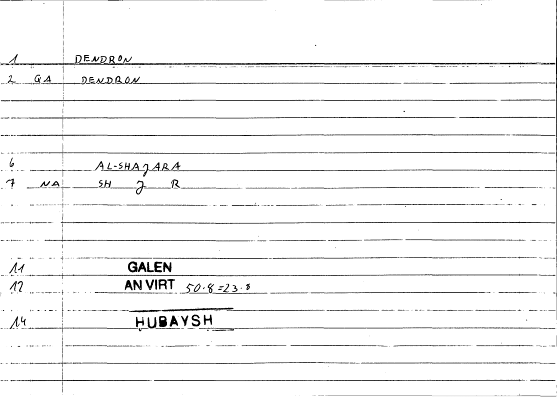 1 DENDRON
2 GA DENDRON
6 AL-SHAJARA
7 NA SH J R
11 GALEN
12 AN VIRT 50.8=23.8
14 HUBAYSH